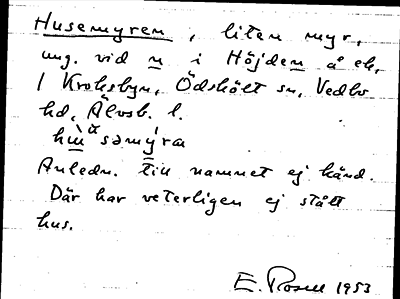 Husemyren, liten myr,
ung. vid n i Höjden å ek.
/ Kroksbyn, Ödskölt sn, Vedbo
hd, Älvsb. l.
Anledn. till namnet ej känd.
Där har veterligen ej stått
hus.
E. Rosell 1953